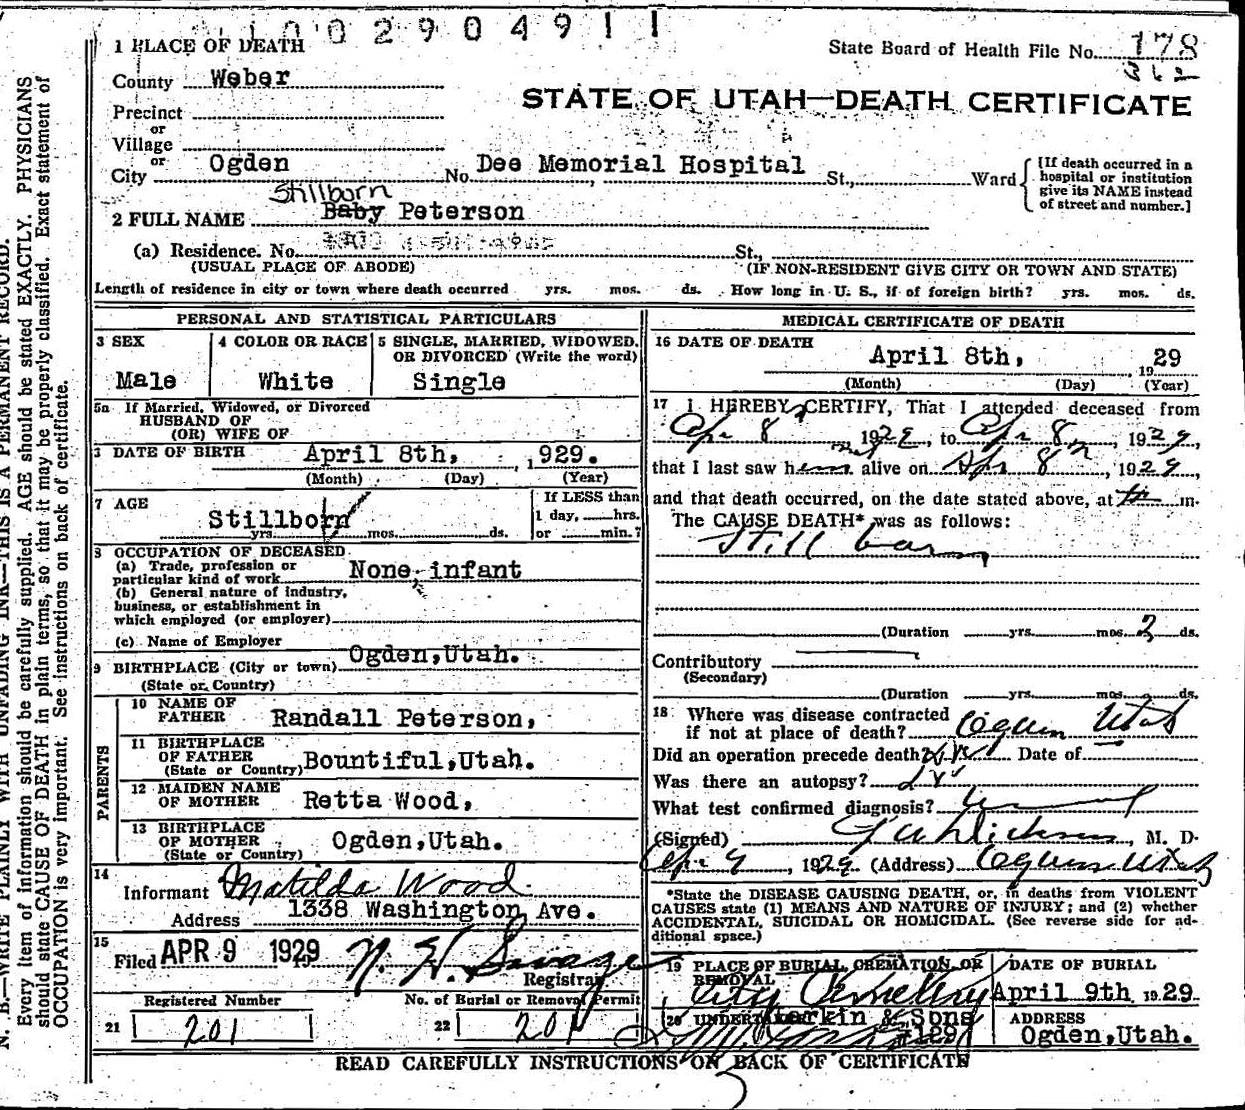 1002904911
1 PLACE OF DEATH
State Board of Health File No. 178
362
County Weber
STATE OF UTAH—DEATH CERTIFICATE
Precinct
or
Village
or
City Ogden No. Dee Memorial Hospital, St., Ward
[If death occurred in a hospital or institution give its NAME instead of street and number.]
Stillborn
2 FULL NAME Baby Peterson
(a) Residence. No. St.,
(USUAL PLACE OF ABODE) (IF NON-RESIDENT GIVE CITY OR TOWN AND STATE)
Length of residence in city or town where death occurred yrs. mos. ds. How long in U. S., if of foreign birth? yrs. mos. ds.
PERSONAL AND STATISTICAL PARTICULARS
3 SEX Male
4 COLOR OR RACE White
5 SINGLE, MARRIED, WIDOWED, OR DIVORCED (Write the word) Single
5a If Married, Widowed, or Divorced
HUSBAND OF
(OR) WIFE OF
DATE OF BIRTH April 8th, 1929.
(Month) (Day) (Year)
7 AGE Stillborn
yrs. mos. ds.
If LESS than
1 day, hrs.
or min.?
8 OCCUPATION OF DECEASED
(a) Trade, profession or
particular kind of work None, infant
(b) General nature of industry,
business, or establishment in
which employed (or employer)
(c) Name of Employer
9 BIRTHPLACE (City or town) Ogden, Utah.
(State or Country)
PARENTS
10 NAME OF FATHER Randall Peterson,
11 BIRTHPLACE OF FATHER (State or Country) Bountiful, Utah.
12 MAIDEN NAME OF MOTHER Retta Wood,
13 BIRTHPLACE OF MOTHER (State or Country) Ogden, Utah.
14
Informant Matilda Wood
Address 1338 Washington Ave.
15
Filed APR 9 1929 N. H. Savage
Registrar
Registered Number No. of Burial or Removal Permit
21 201 22 201
MEDICAL CERTIFICATE OF DEATH
16 DATE OF DEATH April 8th, 1929
(Month) (Day) (Year)
17 I HEREBY CERTIFY, That I attended deceased from
Apr 8, 1929, to Apr 8, 1929,
that I last saw him alive on Apr 8, 1929
and that death occurred, on the date stated above, at m.
The CAUSE DEATH* was as follows:
Still born
(Duration yrs. mos. 2 ds.
Contributory
(Secondary)
(Duration yrs. mos. ds.
18 Where was disease contracted
if not at place of death? Ogden Utah
Did an operation precede death? Date of
Was there an autopsy?
What test confirmed diagnosis?
(Signed) M. D.
Apr 9, 1929 (Address) Ogden Utah
*State the DISEASE CAUSING DEATH, or, in deaths from VIOLENT
CAUSES state (1) MEANS AND NATURE OF INJURY; and (2) whether
ACCIDENTAL, SUICIDAL OR HOMICIDAL. (See reverse side for ad-
ditional space.)
19 PLACE OF BURIAL, CREMATION, OR REMOVAL City Cemetery
DATE OF BURIAL April 9th, 1929.
20 UNDERTAKER Larkin & Sons
#129
ADDRESS Ogden, Utah.
READ CAREFULLY INSTRUCTIONS ON BACK OF CERTIFICATE
N. B.—WRITE PLAINLY WITH UNFADING INK—THIS IS A PERMANENT RECORD.
Every item of information should be carefully supplied. AGE should be stated EXACTLY. PHYSICIANS
should state CAUSE OF DEATH in plain terms, so that it may be properly classified. Exact statement of
OCCUPATION is very important. See instructions on back of certificate.